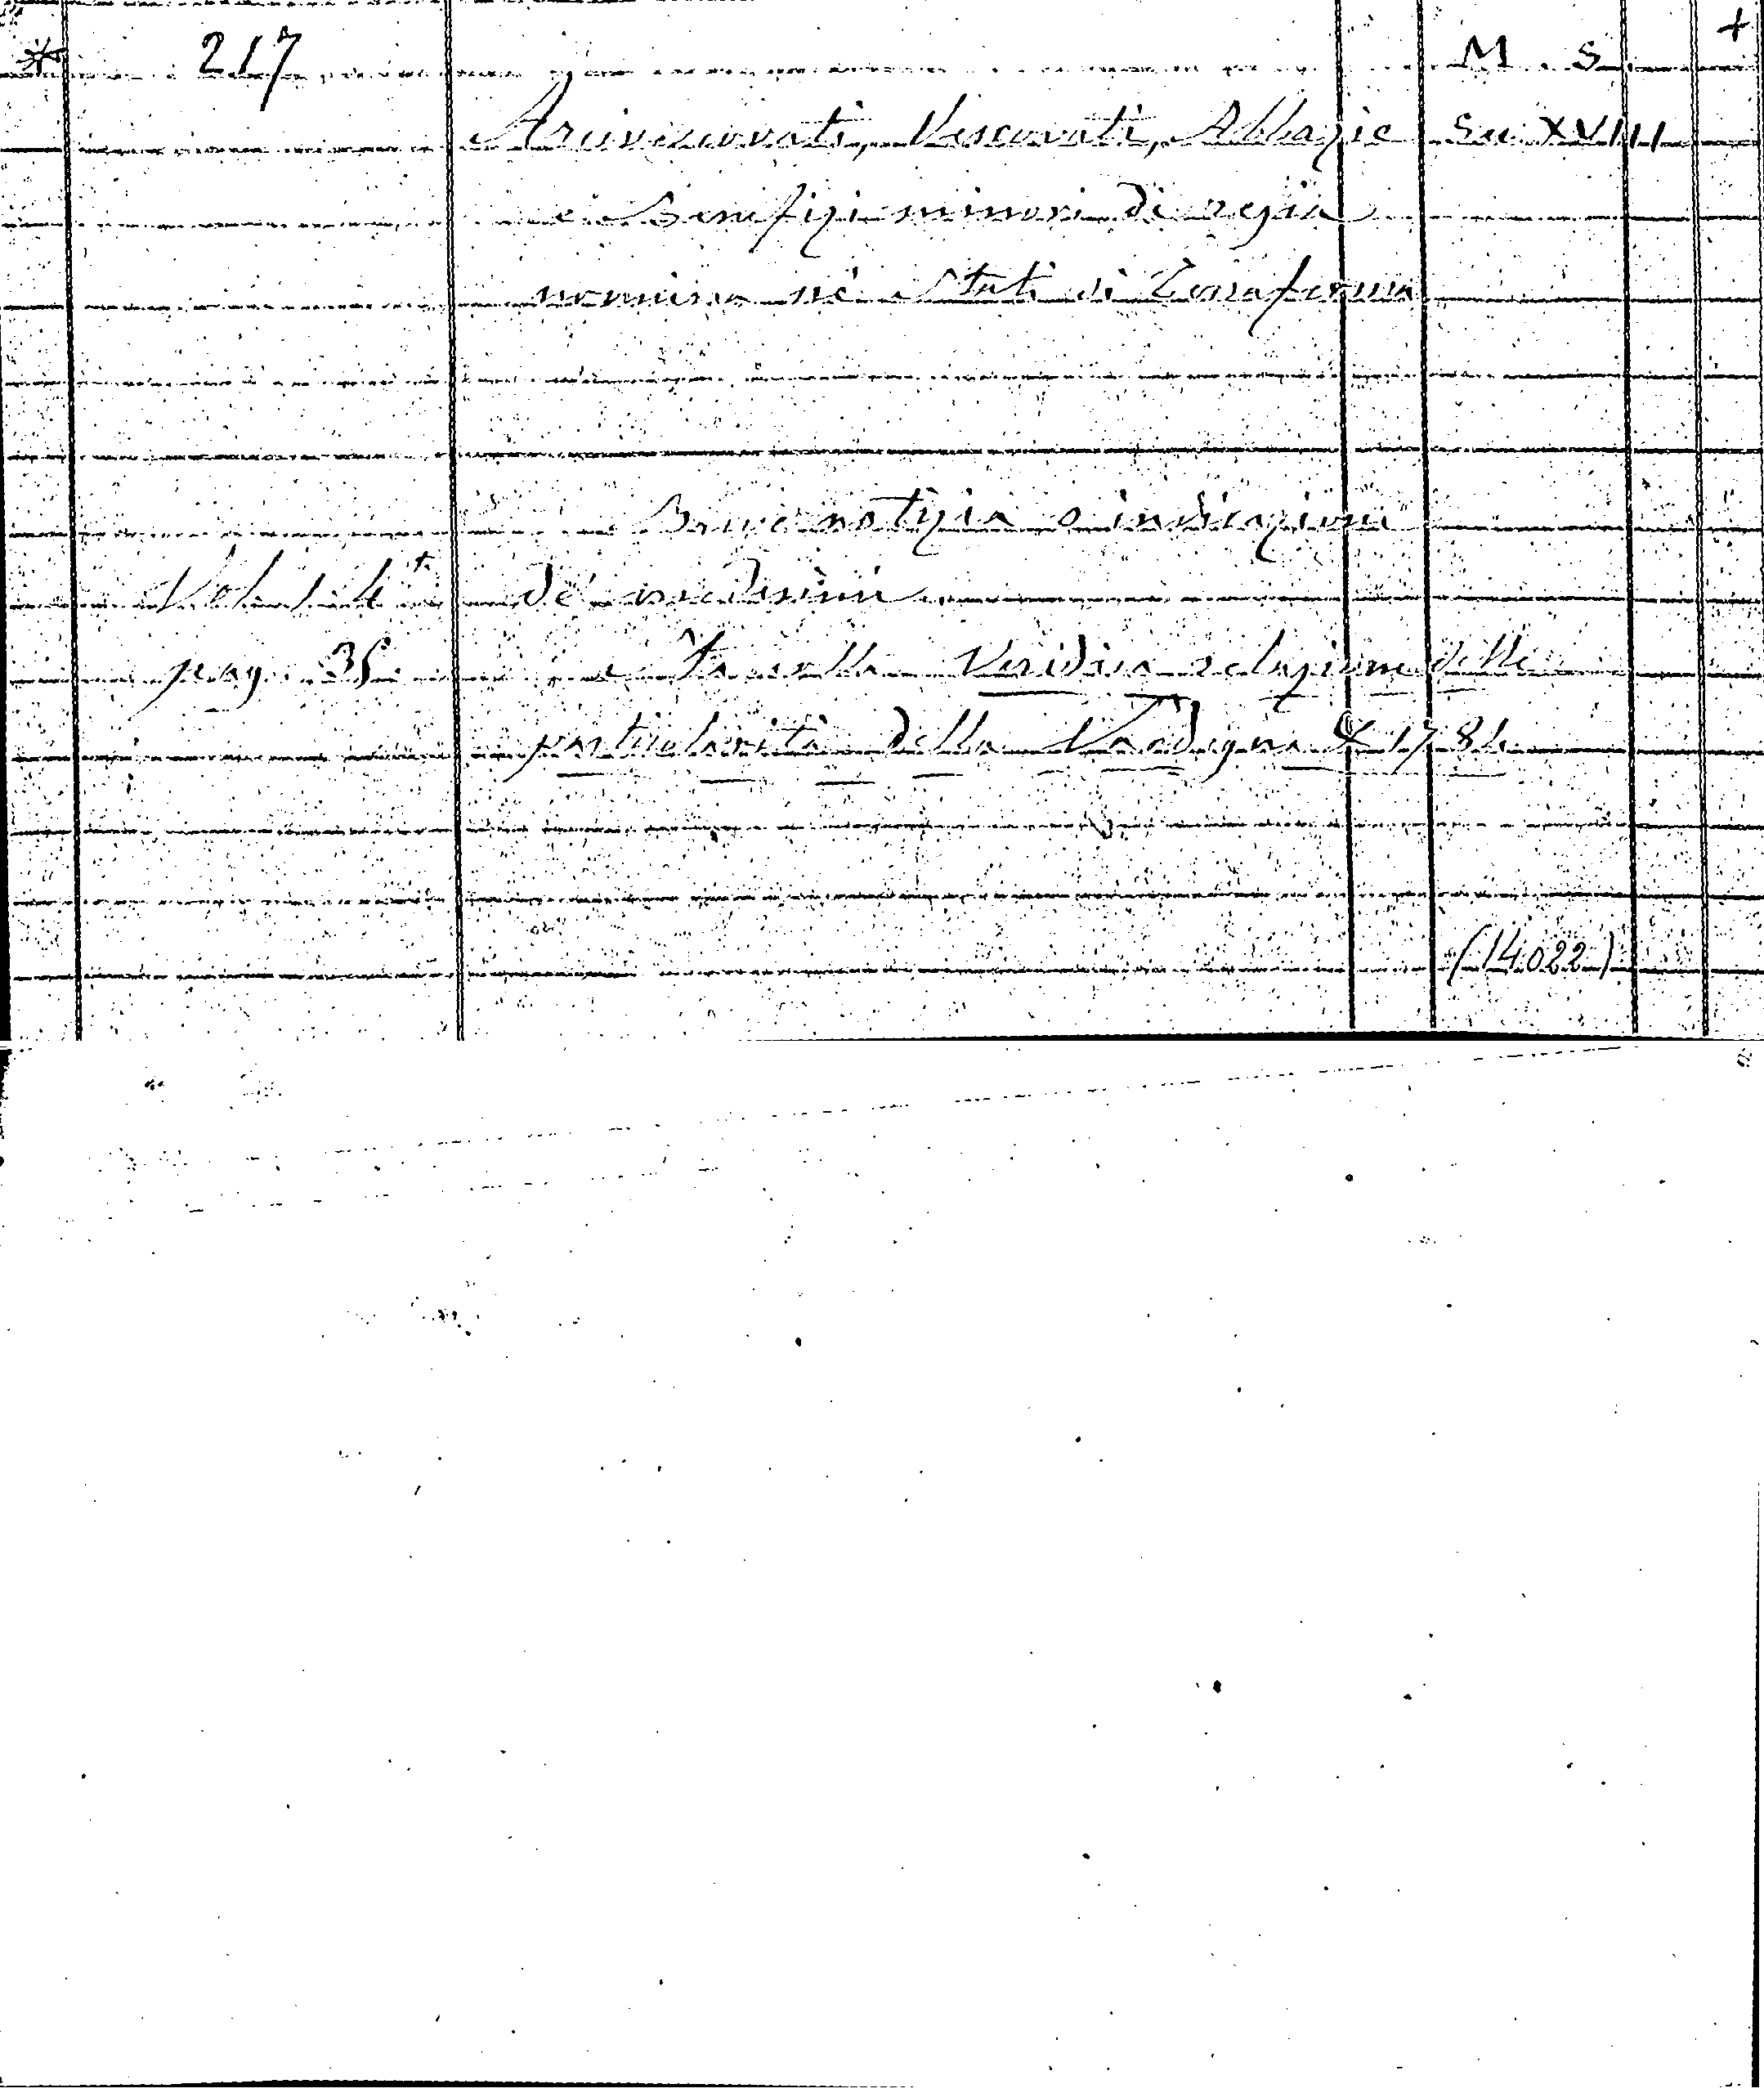 +
* 217 M. S.
Arcivescovati, Vescovati, Abbazie Sec. XVIII
e Benefizi minori di regia
nomina ne' Stati di Terraferma
Breve notizia o indicazione
de' medesimi
pag. 35 Veridica relazione delle
particolarità della Sardegna & 1784
(14.022)